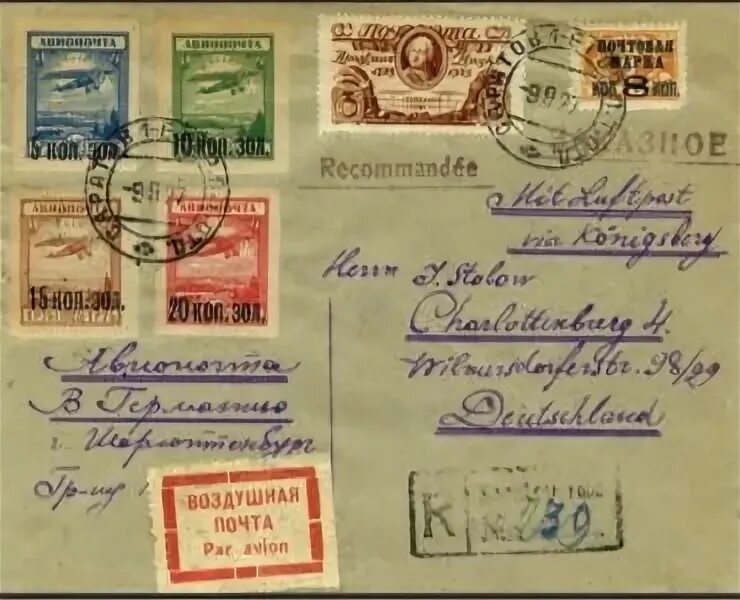 АВИОПОЧТА
5 КОП. ЗОЛ.
АВИОПОЧТА
10 КОП. ЗОЛ.
АВИОПОЧТА
15 КОП. ЗОЛ.
АВИОПОЧТА
20 КОП. ЗОЛ.
Почта
ПОЧТОВАЯ
МАРКА
КОП. 8 КОП.
САРАТОВ
9 11 27
САРАТОВ
9 11 27
Recommandée
ЗАКАЗНОЕ
Mit Luftpost
via Königsberg
Herrn J. Stobow
Charlottenburg 4.
Wilmersdorferstr. 98/99
Deutschland
Авиопочта
В Германию
г. Шарлоттенбург
Гр-ну
ВОЗДУШНАЯ
ПОЧТА
Par avion
R
№ 239